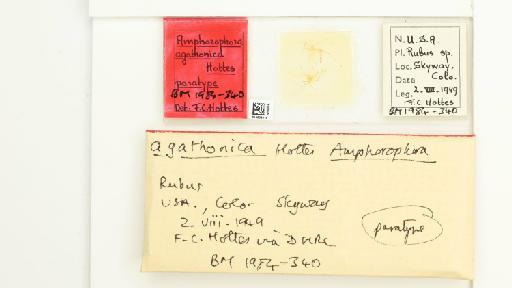 Amphorophora
agathonica
Hottes
paratype
BM 1984-340
Det. F.C. Hottes
N. U.S.A.
Pl. Rubus sp.
Loc. Skyway.
Colo.
Date
Leg. 2.VIII.1949
F.C. Hottes
BM 1984-340
agathonica Hottes Amphorophora
Rubus
USA., Color Skyway
2.VIII.1949
F.C. Hottes via D
paratype
BM 1984-340